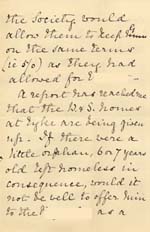 the Society would
allow them to keep him
on the same terms
(ie 5/0) as they had
allowed for E
A report has reached me
that the B&S. Homes
at Eyke are being given
up. If there were a
little orphan, 6 or 7 years
old left homeless in
consequence, would it
not be well to offer him
to the as a